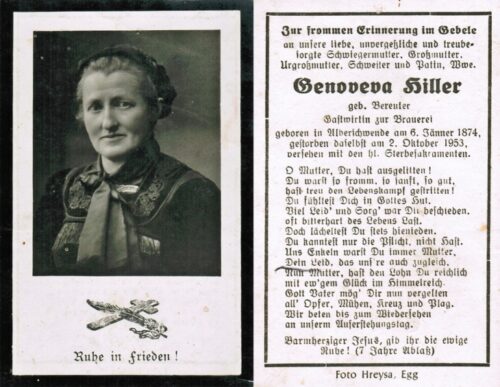 Ruhe in Frieden!
Zur frommen Erinnerung im Gebete
an unsere liebe, unvergeßliche und treube-
sorgte Schwiegermutter, Großmutter,
Urgroßmutter, Schwester und Patin, Wwe.
Genoveva Hiller
geb. Bereuter
Gastwirtin zur Brauerei
geboren in Alberschwende am 6. Jänner 1874,
gestorben daselbst am 2. Oktober 1953,
versehen mit den hl. Sterbesakramenten.
O Mutter, Du hast ausgelitten!
Du warst so fromm, so sanft, so gut,
hast treu den Lebenskampf gestritten!
Du fühltest Dich in Gottes Hut.
Viel Leid' und Sorg' war Dir beschieden.
oft bitterhart des Lebens Last.
Doch lächeltest Du stets hienieden.
Du kanntest nur die Pflicht, nicht Hast.
Uns Enkeln warst Du immer Mutter,
Dein Leid, das uns're auch zugleich.
Nun Mutter, hast den Lohn Du reichlich
mit ew'gem Glück im Himmelreich.
Gott Vater mög' Dir nun vergelten
all' Opfer, Mühen, Kreuz und Plag.
Wir beten bis zum Wiedersehen
an unserm Auferstehungstag.
Barmherziger Jesus, gib ihr die ewige
Ruhe! (7 Jahre Ablaß)
Foto Hreysa, Egg